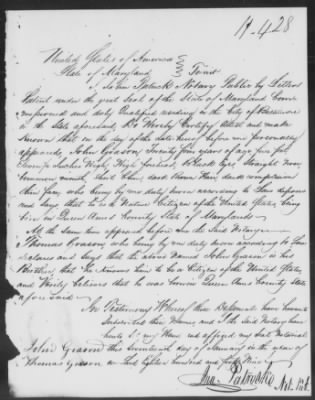 H-428
United States of America
State of Maryland To wit
I John Patrick Notary Public by Letters
Patent under the great Seal of the State of Maryland Com
missioned and duly Qualified residing in the City of Baltimore
in the State aforesaid, Do Hereby Certify Attest and make
Known that on the day of the date hereof before me personally
appeared John Grason, Twenty four years of age five feet
Inches High, high forehead, Eyes, Straight nose,
Common mouth, Chin, dark Brown Hair, dark complexion
face, who being by me duly sworn according to Law deposes
and says that he is a Native Citizen of the United States being
born in Queen Anns County State of Maryland
At the same time appeared before me the Said Notary
Thomas Grason, who being by me duly sworn according to Law
declares and says that the above named John Grason is his
Brother, that he knows him to be a Citizen of the United States
and verily believes that he was born in Queen Anns County State
afore Said
In Testimony Whereof the Deponents have hereunto
Subscribed their Names, and I the said Notary have
hereto Set my Hand and affixed my Seal Notarial
John Grason this Seventeenth day of January in the year of
Thomas Grason Eighteen hundred and forty Nine
Jno. Patrick Not. Pub.